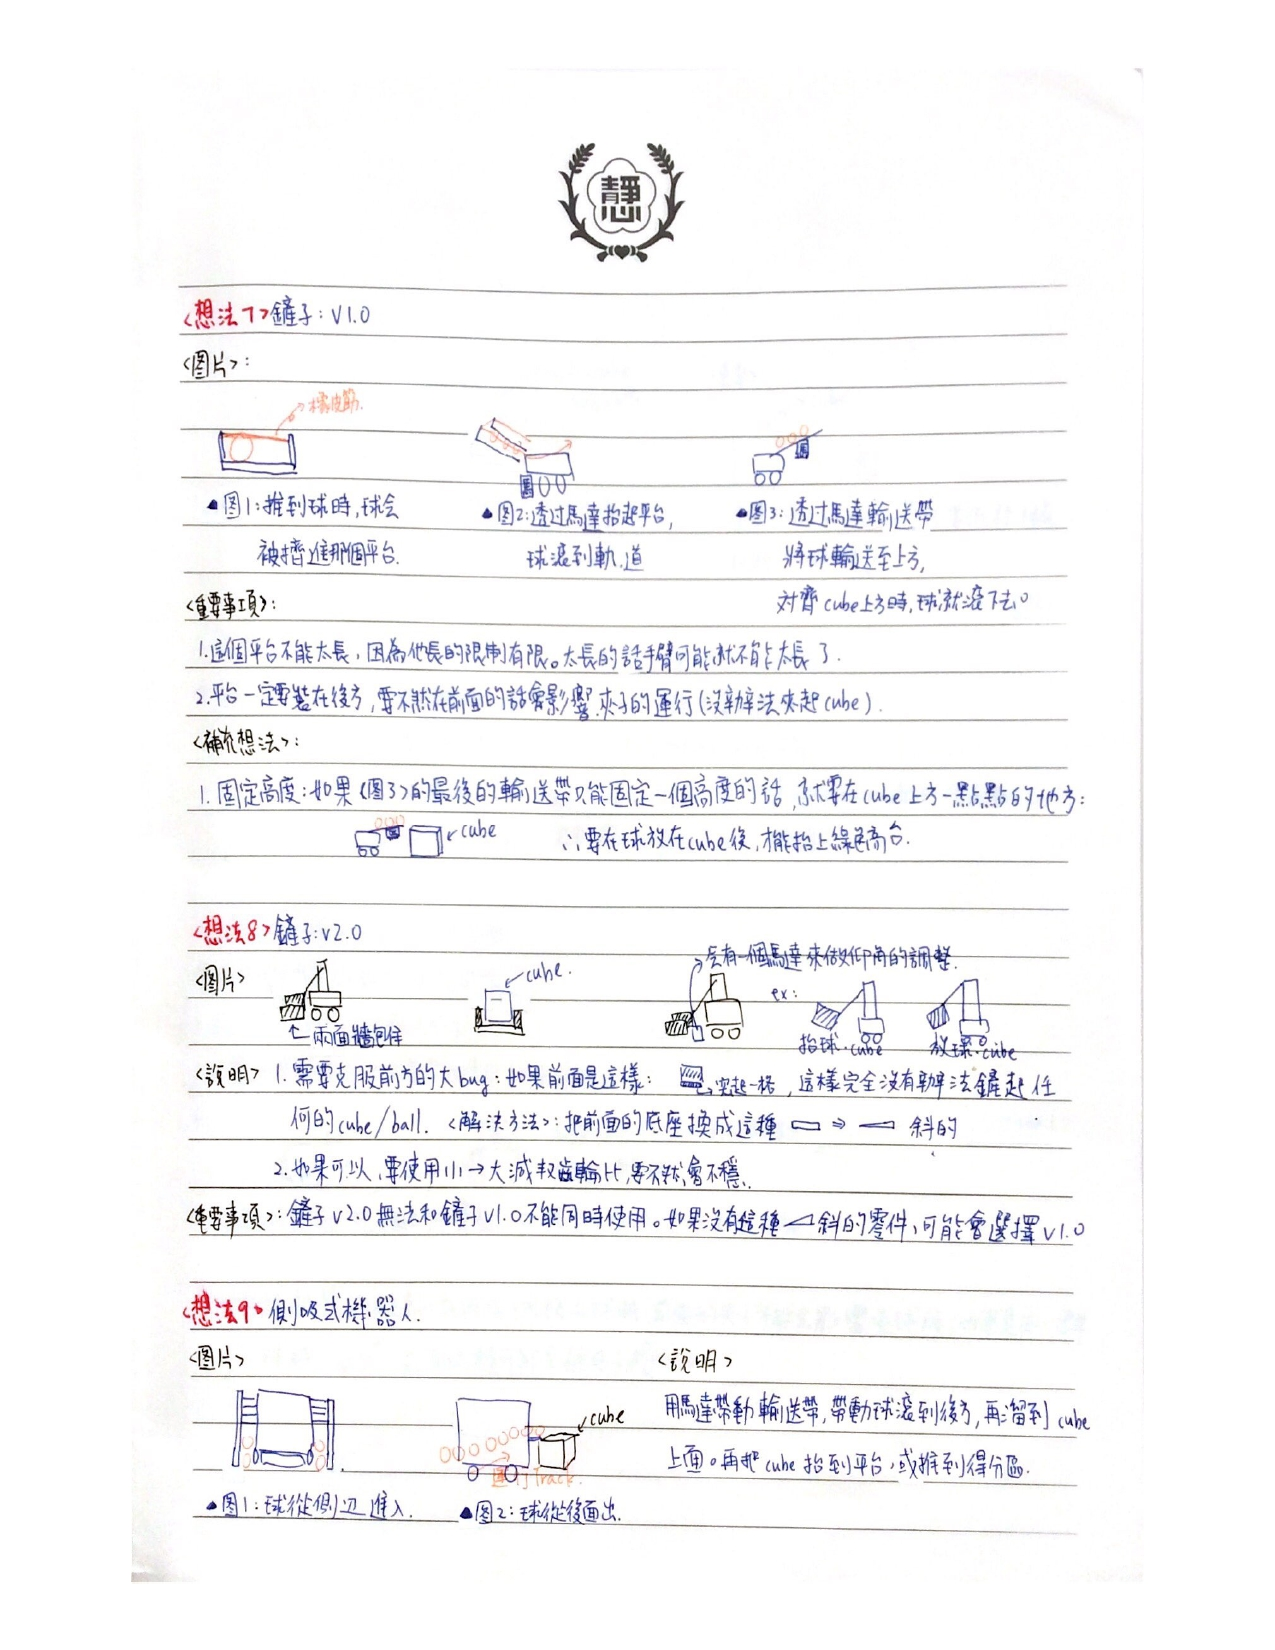 靜心
<想法7>鏟子：V1.0
<圖片>：
橡皮筋.
▲圖1：推到球時,球會
被擠進那個平台.
▲圖2：透過馬達抬起平台,
球滾到軌道
▲圖3：透過馬達輸送帶
將球輸送至上方,
對齊cube上方時,球就滾下去。
<重要事項>：
1.這個平台不能太長，因為他長的限制有限。太長的話手臂可能就不能太長了.
2.平台一定要裝在後方,要不然在前面的話會影響夾子的運行(沒辦法夾起cube).
<補充想法>：
1.固定高度：如果<圖3>的最後的輸送帶只能固定一個高度的話,就要在cube上方一點點的地方：
cube
∴要在球放在cube後,才能抬上綠色高台.
<想法8>鏟子:v2.0
<圖片>
兩面牆包住
cube.
會有一個馬達來做仰角的調整.
ex:
抬球.cube
放球.cube
<說明> 1.需要克服前方的大bug：如果前面是這樣： 突起一格，這樣完全沒有辦法鏟起任
何的cube/ball. <解決方法>：把前面的底座換成這種 ⇒ 斜的
2.如果可以,要使用小→大減扭齒輪比,要不然會不穩.
<重要事項>：鏟子v2.0無法和鏟子v1.0不能同時使用。如果沒有這種 斜的零件,可能會選擇v1.0
<想法9> 側吸式機器人.
<圖片>
<說明>
cube
運行Track.
用馬達帶動輸送帶,帶動球滾到後方,再溜到cube
上面。再把cube抬到平台,或推到得分區.
▲圖1：球從側边進入.
▲圖2：球從後面出.